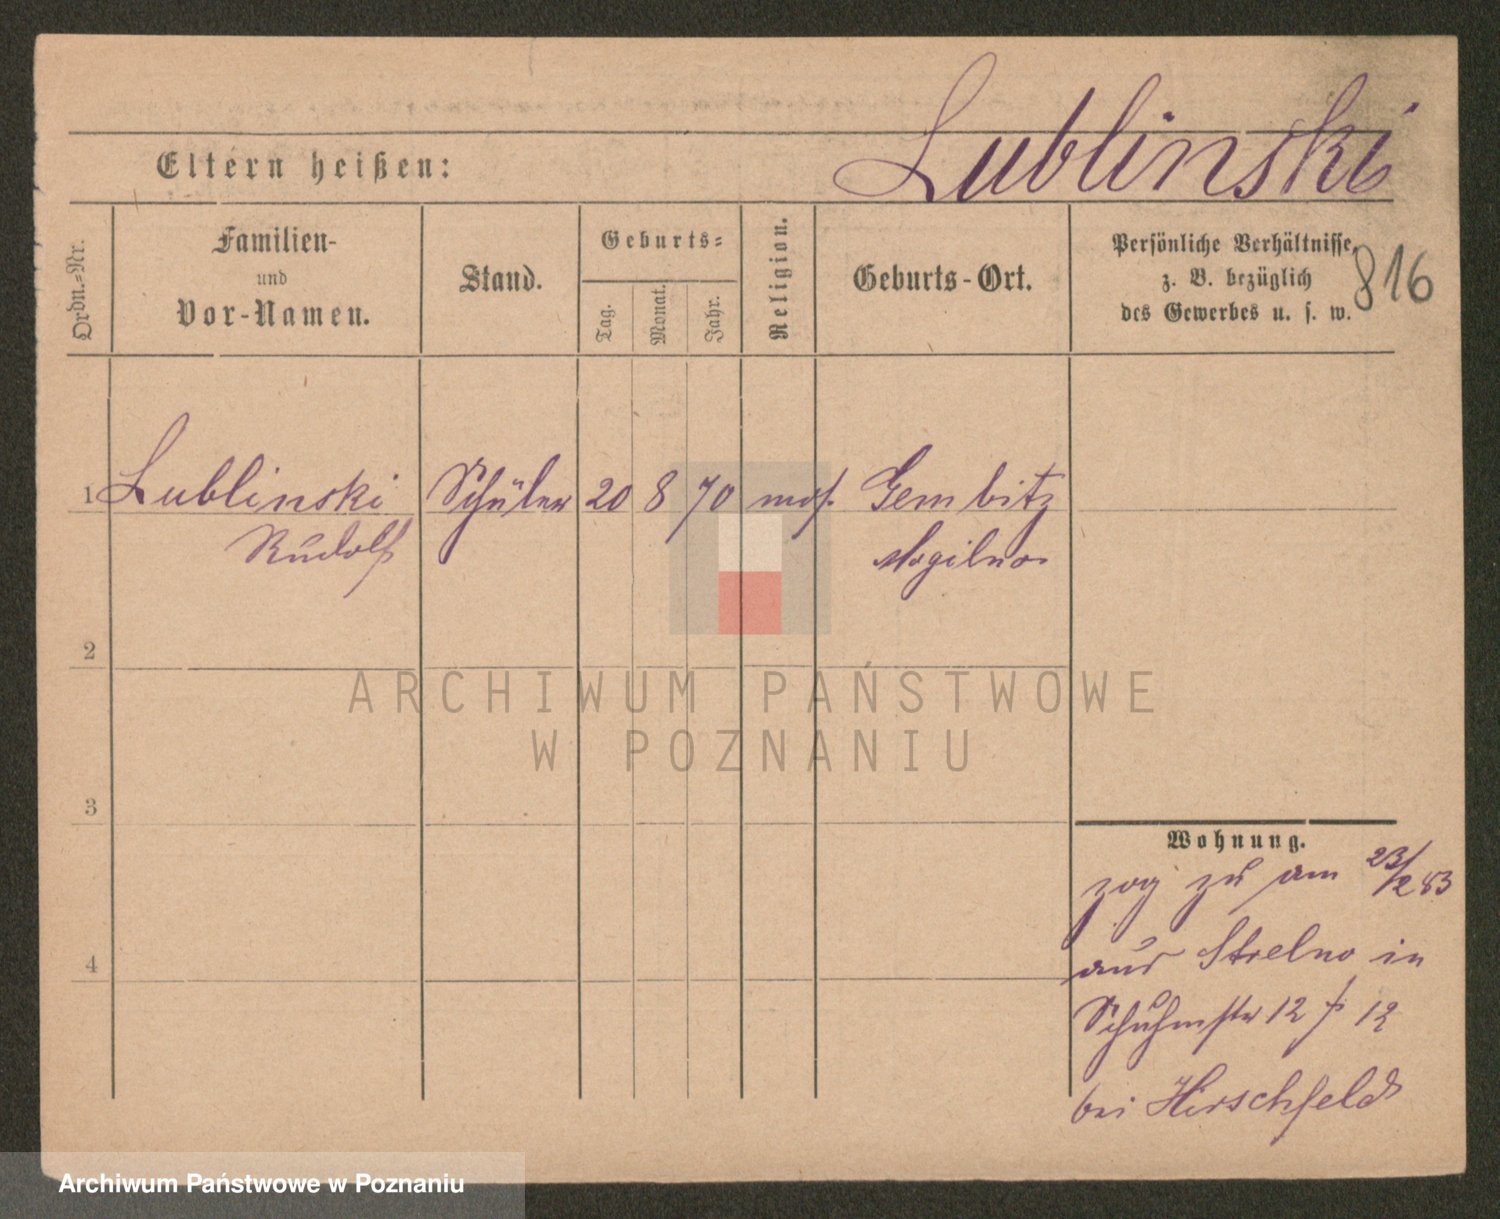 Lublinski
Eltern heißen:
Ordn.-Nr.
Familien-
und
Vor-Namen.
Stand.
Geburts-
Tag.
Monat.
Jahr.
Religion.
Geburts-Ort.
Persönliche Verhältnisse,
z. B. bezüglich
des Gewerbes u. s. w.
816
1 Lublinski Schüler 20 8 70 mos. Gembitz
Rudolf Mogilno
2
ARCHIWUM PAŃSTWOWE
W POZNANIU
3
Wohnung.
zog zu am 23/2 83
aus Strelno in
4
Schuhmstr 12 12
bei Hirschfeld
Archiwum Państwowe w Poznaniu